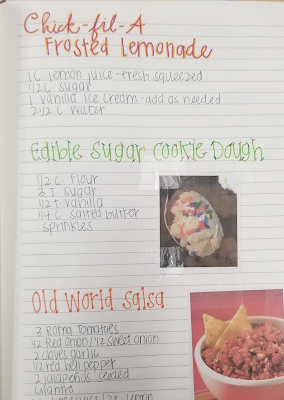 Chick-fil-A
Frosted Lemonade
1 C lemon juice - fresh squeezed
1/2 C sugar
1 vanilla ice cream - add as needed
2 1/2 C water
Edible Sugar Cookie Dough
1/2 C. flour
3 T sugar
1/2 T vanilla
1/4 C salted butter
sprinkles
Old World Salsa
3 Roma Tomatoes
1/2 Red Onion / 1/2 sweet onion
2 cloves garlic
1/2 red bell pepper
2 jalapeños seeded
cilantro
lemon